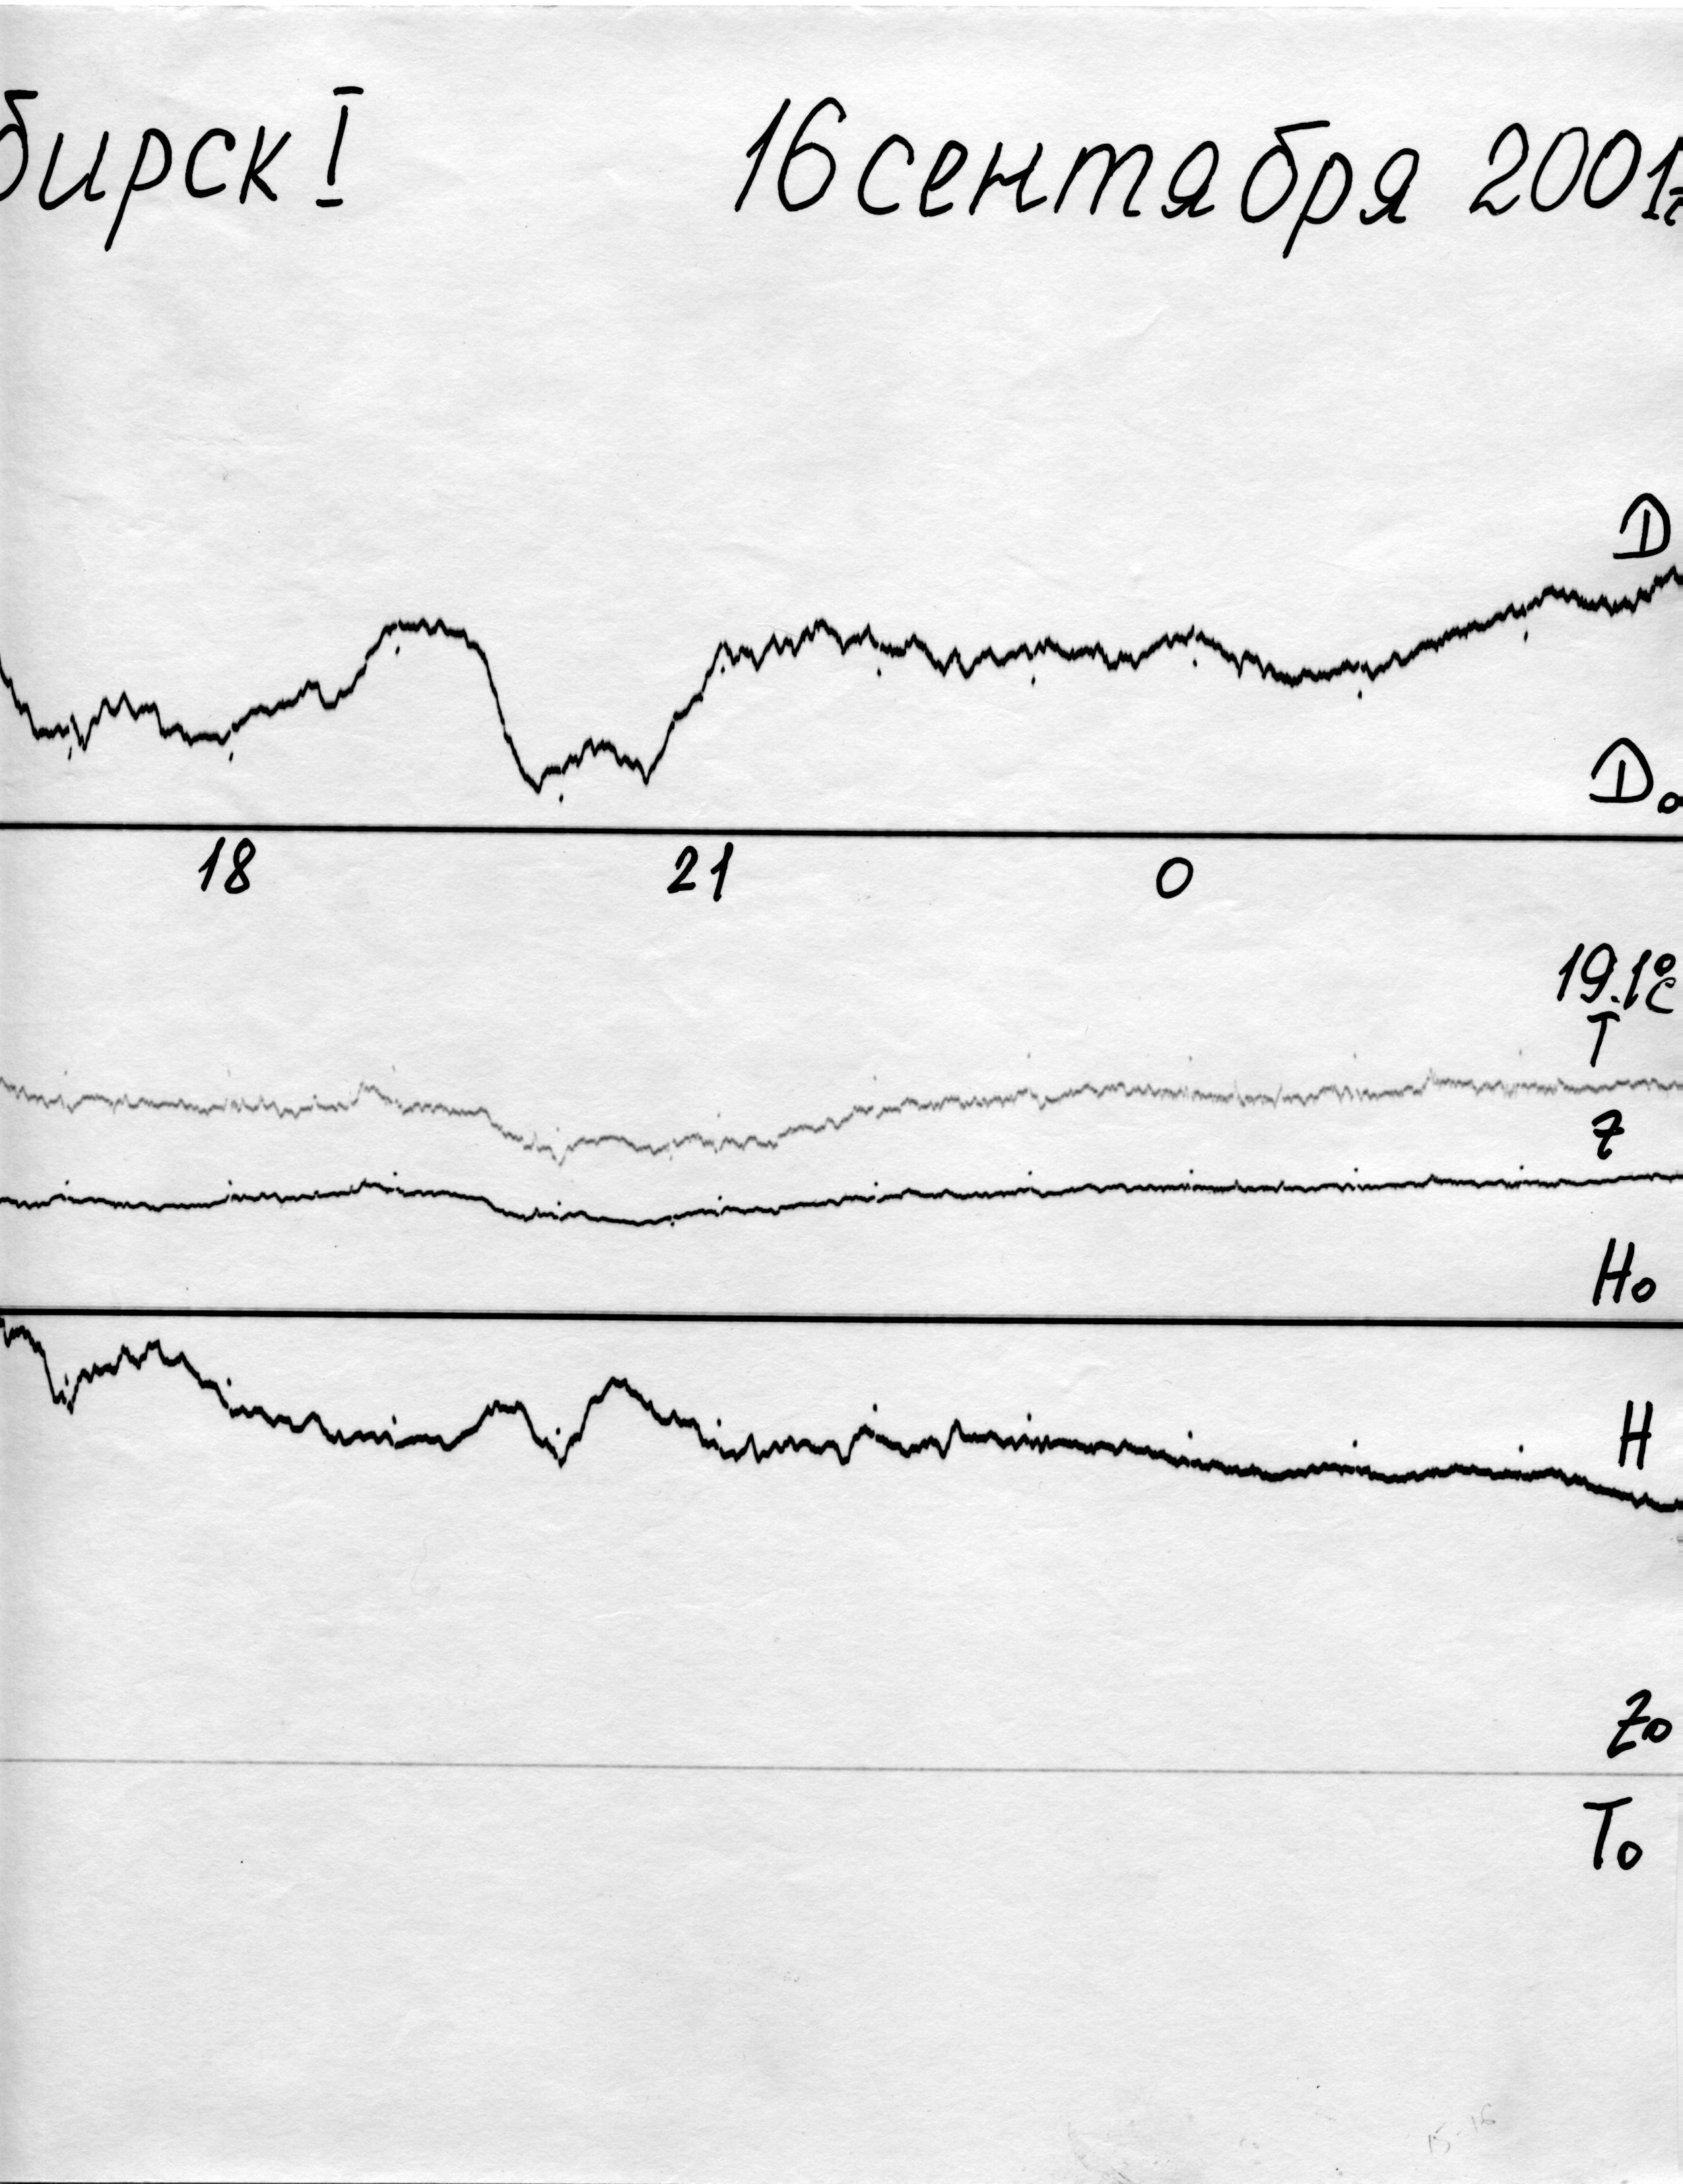 бирск I 16 сентября 2001г
D
D₀
18 21 0
19.1°C
T
Z
H₀
H
Z₀
T₀
15-16